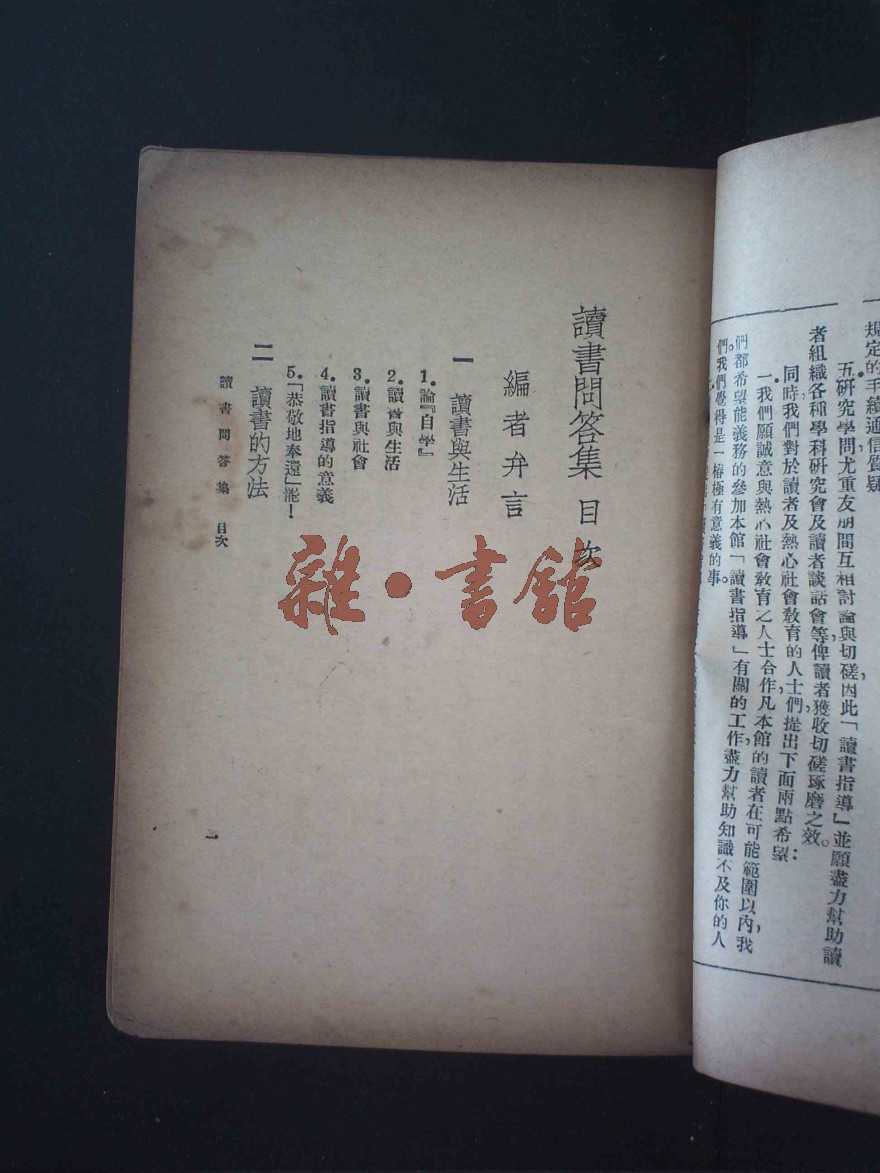 規定的手續通信質疑
五、研究學問尤重友朋間互相討論與切磋因此「讀書指導」並願盡力幫助讀
者組織各種學科研究會及讀者談話會等俾讀者獲收切磋琢磨之效。
同時我們對於讀者及熱心社會教育的人士們提出下面兩點希望：
一、我們願誠意與熱心社會教育之人士合作凡本館的讀者在可能範圍以內，我
們都希望能義務的參加本館「讀書指導」有關的工作盡力幫助知識不及你的人
們。我們覺得是一樁極有意義的事。
讀書問答集 目次
編者弁言
一 讀書與生活
1. 論『自學』
2. 讀書與生活
3. 讀書與社會
4. 讀書指導的意義
5. 「恭敬地奉還」罷！
二 讀書的方法
讀書問答集 目次
一
雜·書館